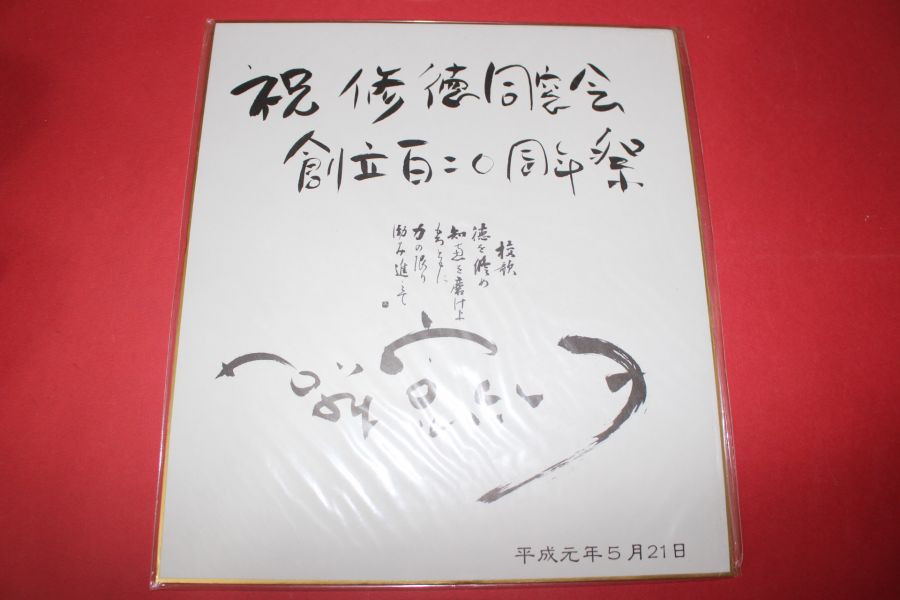 祝 修徳同窓会
創立百二〇周年祭
校歌
徳を修め
知恵を磨けよ
ともに
力の限り
励み進みて
平成元年5月21日